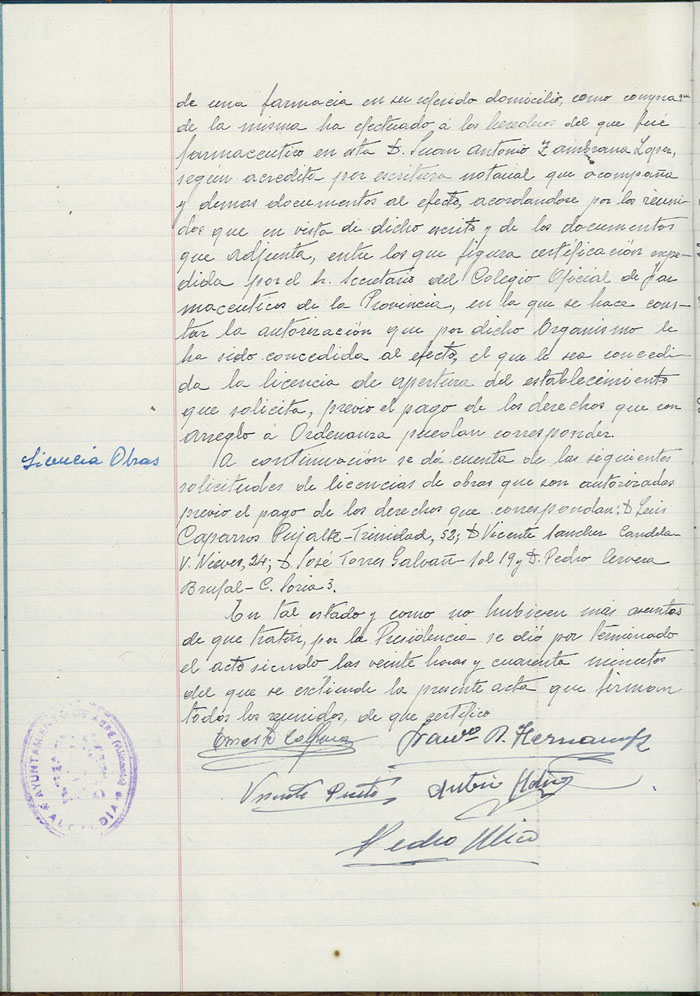 de una farmacia en su referido domicilio, como compra que
de la misma ha efectuado á los herederos del que fué
farmaceutico en esta D. Juan Antonio Zambrana Lopez,
según acredita por escritura notarial que acompaña
y demas documentos al efecto, acordandose por los reuni-
dos que en vista de dicho escrito y de los documentos
que adjunta, entre los que figura certificación expe-
dida por el Sr. Secretario del Colegio Oficial de Far-
maceuticos de la Provincia, en la que se hace cons-
tar la autorización que por dicho Organismo le
ha sido concedida al efecto, el que le sea concedi-
da la licencia de apertura del establecimiento
que solicita, previo el pago de los derechos que con
arreglo á Ordenanza puedan corresponder.
Licencia Obras
A continuación se dá cuenta de las siguientes
solicitudes de licencias de obras que son autorizadas
previo el pago de los derechos que correspondan: D Luis
Caparros Pujalte-Trinidad, 52; D Vicente Sanchez Candela-
V. Nieves, 24; D. José Torres Galvañ-Sol 19 y D. Pedro Cervera
Brufal-C. Soria 3.
En tal estado y como no hubiesen más asuntos
de que tratar, por la Presidencia se dió por terminado
el acto siendo las veinte horas y cuarenta minutos
del que se extiende la presente acta que firman
todos los reunidos, de que certifico
AYUNTAMIENTO DE ASPE (Alicante)
ALCALDIA
Franco B. Hernandez
Vicente Antonio
Pedro Mico